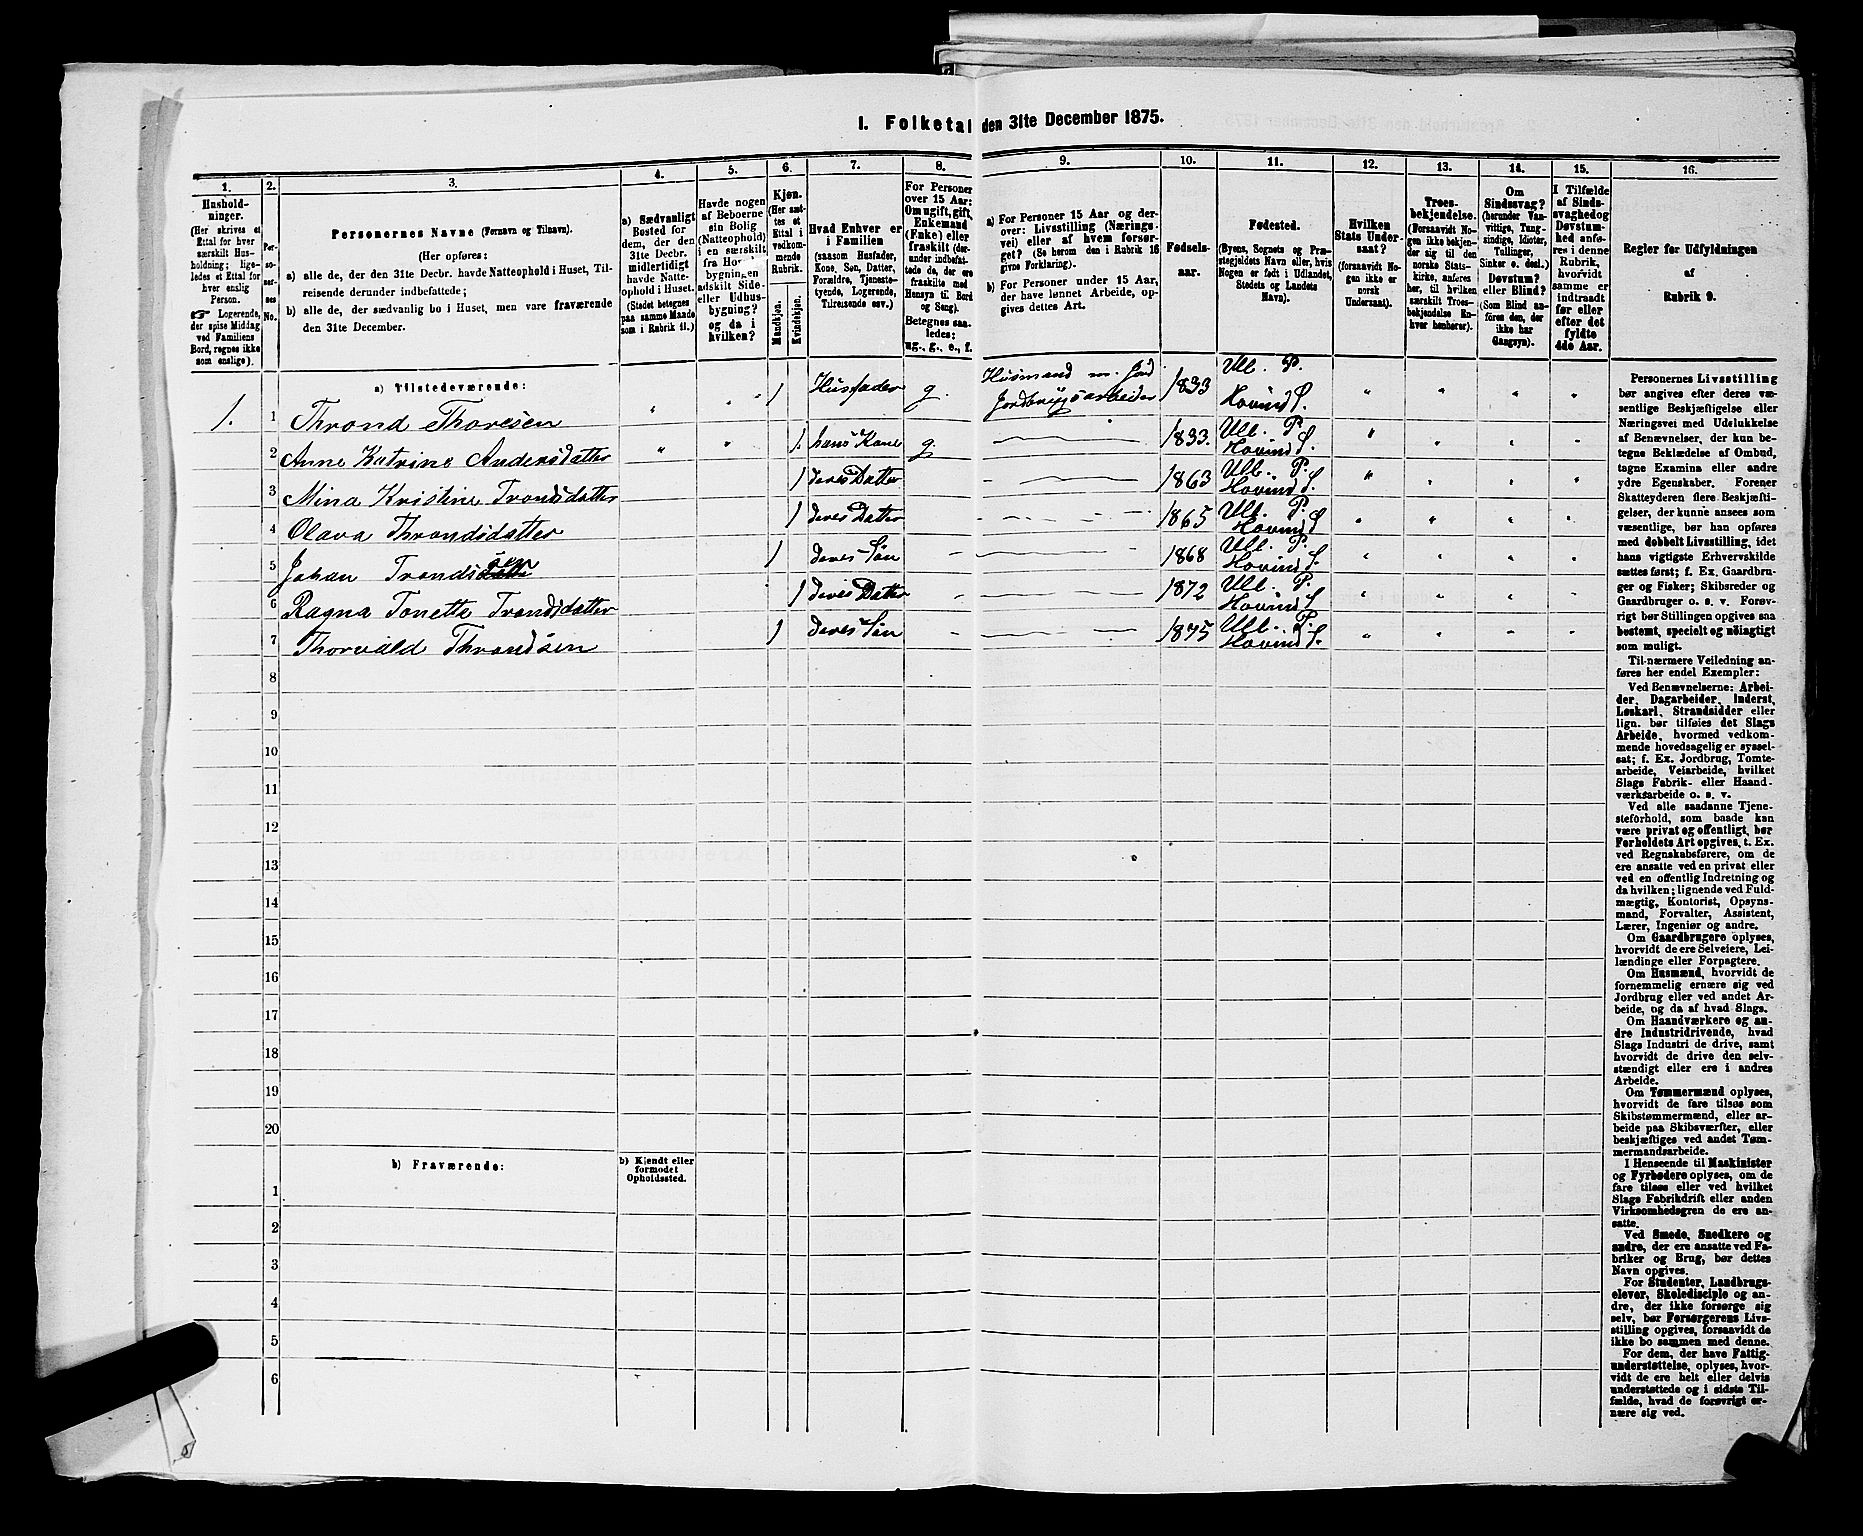 I. Folketal den 31te December 1875.
1. 2. 3. 4. 5. 6. 7. 8. 9. 10. 11. 12. 13. 14. 15. 16.
Hushold-
ninger.
(Her skrives et
Ettal for hver
særskilt Hus-
holdning; lige-
ledes et Ettal
for hver
enslig
Person.
☞ Logerende,
der spise Middag
ved Familiens
Bord, regnes ikke
som enslige).
Per-
so-
ner-
nes
No.
Personernes Navne (Fornavn og Tilnavn).
(Her opføres:
a) alle de, der den 31te Decbr. havde Natteophold i Huset, Til-
reisende derunder indbefattede;
b) alle de, der sædvanlig bo i Huset, men vare fraværende
den 31te December.
a) Sædvanligt
Bosted for
dem, der den
31te Decbr.
midlertidigt
havde Natte-
ophold i Huset.
(Stedet betegnes
paa samme Maade
som i Rubrik 11.)
Havde nogen
af Beboerne
sin Bolig
(Natteophold)
i en særskilt
fra Ho
bygningen
adskilt Side-
eller Udhus-
bygning?
og da i
hvilken?
Kjøn.
(Her sæt-
tes et
Ettal i
vedkom-
mende
Rubrik.
Mandkjøn.
Kvindekjøn.
Hvad Enhver er
i Familien
(saasom Husfader,
Kone, Søn, Datter,
Forældre, Tjeneste-
tyende, Logerende,
Tilreisende osv.)
For Personer
over 15 Aar:
Om ugift, gift,
Enkemand
(Enke) eller
fraskilt (der-
under indbefat-
tede de, der ere
fraskilte med
Hensyn til Bord
og Seng).
Betegnes saa-
ledes:
ug., g., e., f.
a) For Personer 15 Aar og der-
over: Livsstilling (Nærings-
vei) eller af hvem forsør-
get? (Se herom den i Rubrik 16
givne Forklaring).
b) For Personer under 15 Aar,
der have lønnet Arbeide, op-
gives dettes Art.
Fødsels-
aar.
Fødested.
(Byens, Sognets og Præ-
stegjeldets Navn eller, hvis
Nogen er født i Udlandet,
Stedets og Landets
Navn).
Hvilken
Stats Under-
saat?
(forsaavidt No-
gen ikke er
norsk
Undersaat).
Troes-
bekjendelse.
(Forsaavidt No-
gen ikke bekjen-
der sig til den
norske Stats-
kirke, anføres
her, til hvilken
særskilt Troes-
bekjendelse En-
hver henhører).
Om
Sindssvag?
(herunder Van-
vittige, Tung-
sindige, Idioter,
Tullinger,
Sinker o. desl.)
Døvstum?
eller Blind?
(Som Blind an-
føres den, der
ikke har
Gangsyn).
I Tilfælde
af Sinds-
svaghed og
Døvstum-
hed anfø-
res i denne
Rubrik,
hvorvidt
samme er
indtraadt
før eller
efter det
fyldte
4de Aar.
Regler for Udfyldningen
af
Rubrik 9.
a) Tilstedeværende:
1. 1 Thrond Thoresen " " 1 Husfader g. Husmand m. Jord Jordbrugsarbeider 1833 Ull. P. Hovind S. " " " "
2 Anne Katrine Andersdatter " " 1. hans Kone g. 1833. Ull. P. Hovind S. " " " "
3 Mina Kristine Trondsdatter 1 deres Datter 1863 Ull. P. Hovind S. " " " "
4 Olava Throndsdatter 1 deres Datter 1865 Ull. P. Hovind S " " " "
5 Johan Trondssen 1 deres Søn 1868 Ull. P. Hovind S. " " " "
6 Ragna Tonette Trondsdatter 1 deres Datter 1872 Ull. P. Hovind S " " " "
7 Thorvald Throndsen 1 deres Søn 1875 Ull. P. Hovind S. " " " "
8
9
10
11
12
13
14
15
16
17
18
19
20
b) Fraværende:
b) Kjendt eller
formodet
Opholdssted.
1
2
3
4
5
6
Personernes Livsstilling
bør angives efter deres væ-
sentlige Beskjæftigelse eller
Næringsvei med Udelukkelse
af Benævnelser, der kun be-
tegne Beklædelse af Ombud,
tagne Examina eller andre
ydre Egenskaber. Forener
Skatteyderen flere Beskjæfti-
gelser, der kunne ansees som
væsentlige, bør han opføres
med dobbelt Livsstilling, idet
hans vigtigste Erhvervskilde
sættes først; f. Ex. Gaardbru-
ger og Fisker; Skibsreder og
Gaardbruger o. s. v. Forøv-
rigt bør Stillingen opgives saa
bestemt, specielt og nøiagtigt
som muligt.
Til nærmere Veiledning an-
føres her endel Exempler:
Ved Benævnelserne: Arbei-
der, Dagarbeider, Inderst,
Løskarl, Strandsidder eller
lign. bør tilføies det Slags
Arbeide, hvormed vedkom-
mende hovedsagelig er syssel-
sat; f. Ex. Jordbrug, Tomte-
arbeide, Veiarbeide, hvilket
Slags Fabrik- eller Haand-
værksarbeide o. s. v.
Ved alle saadanne Tjene-
steforhold, som baade kan
være privat og offentligt, bør
Forholdets Art opgives, t. Ex.
ved Regnskabsførere, om de
ere ansatte ved en privat eller
ved en offentlig Indretning og
da hvilken; lignende ved Fuld-
mægtig, Kontorist, Opsyns-
mand, Forvalter, Assistent,
Lærer, Ingeniør og andre.
Om Gaardbrugere oplyses,
hvorvidt de ere Selveiere, Lei-
lændinge eller Forpagtere.
Om Husmænd, hvorvidt de
fornemmelig ernære sig ved
Jordbrug eller ved andet Ar-
beide, og da af hvad Slags.
Om Haandværkere og an-
dre Industridrivende, hvad
Slags Industri de drive, samt
hvorvidt de drive den selv-
stændigt eller ere i andres
Arbeide.
Om Tømmermænd oplyses,
hvorvidt de fare tilsøs som
Skibstømmermænd, eller ar-
beide paa Skibsværfter, eller
beskjæftiges ved andet Tøm-
mermandsarbeide.
I Henseende til Maskinister
og Fyrbødere oplyses, om de
fare tilsøs eller ved hvilket
Slags Fabrikdrift eller anden
Virksomhedsgren de ere an-
satte.
Ved Smede, Snedkere og
andre, der ere ansatte ved Fa-
briker og Brug, bør dettes
Navn opgives.
For Studenter, Landbrugs-
elever, Skoledisciple og an-
dre, der ikke forsørge sig
selv, bør Forsørgerens Livs-
stilling opgives, forsaavidt de
ikke bo sammen med denne.
For dem, der have Fattig-
understøttelse, oplyses, hvor-
vidt de ere helt eller delvis
understøttede og i sidste Til-
fælde, hvad de forøvrigt er-
nære sig ved.